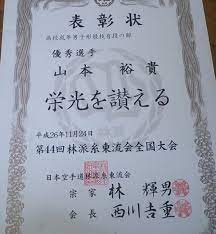 表彰状
高校成年男子形競技有段の部
優秀選手
山本裕貴
栄光を讃える
平成26年11月24日
第44回林派糸東流会全国大会
日本空手道林派糸東流会
宗家 林輝男
会長 西川吉重